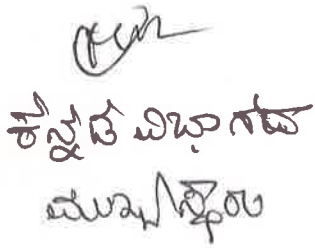 ಕನ್ನಡ ವಿಭಾಗದ
ಮುಖ್ಯಸ್ಥರು